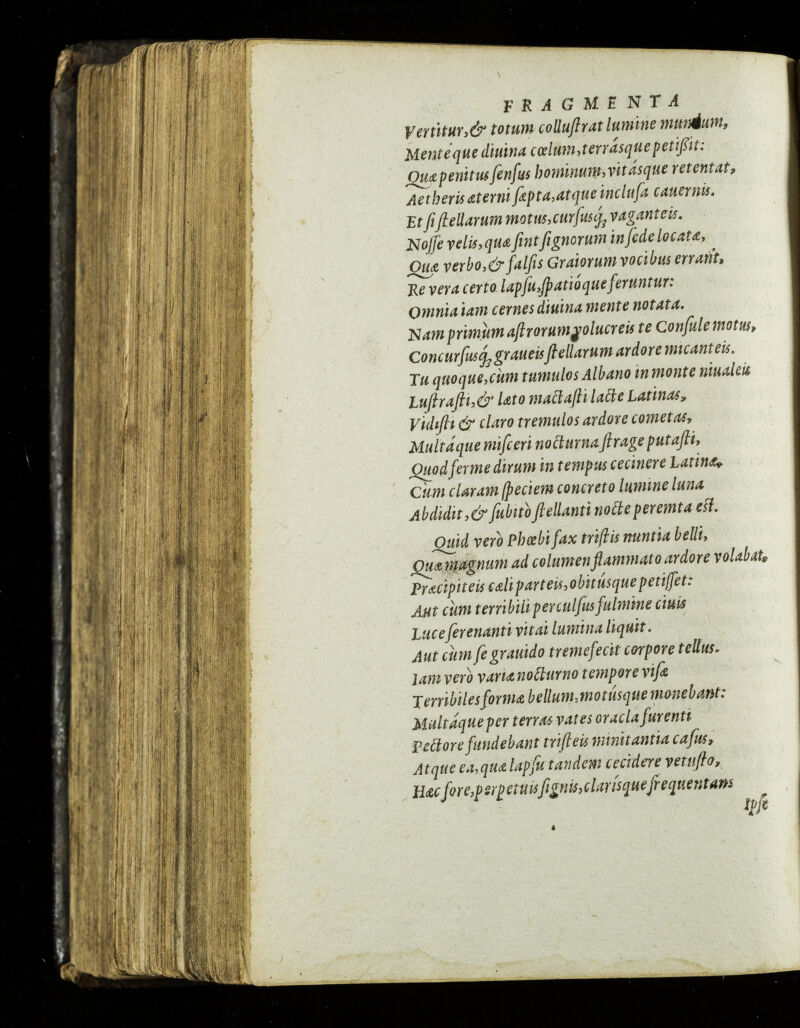 FRAGMENTA
Vertitur,& totum colluſtrat lumine mundum,
Menteque diuina cœlum,terrásque petißit:
Quæ penitus ſenſus hominum,vitásque retentat,
Aetheris æterni ſæpta,atque incluſa cauernis.
Et ſi ſtellarum motus,curſusq; vaganteis.
Noſſe velis,quæ ſint ſignorum in ſede locatæ,
Quæ verbo,& falſis Graiorum vocibus errant,
Re vera certo lapſu,ſpatióque feruntur:
Omnia iam cernes diuina mente notata.
Nam primùm aſtrorum volucreis te Conſule motus,
Concurſusq; graueis ſtellarum ardore micanteis.
Tu quoque,cùm tumulos Albano in monte niualeis
Luſtraſti,& læto mactaſti lacte Latinas,
Vidiſti & claro tremulos ardore cometas,
Multáque miſceri nocturna ſtrage putaſti,
Quod ferme dirum in tempus cecinere Latinæ,
Cùm claram ſpeciem concreto lumine luna
Abdidit,& ſubitò ſtellanti nocte peremta eſt.
Quid verò Phœbi fax triſtis nuntia belli,
Quæ magnum ad columen flammato ardore volabat,
Præcipiteis cæli parteis,obitúsque petiſſet:
Aut cùm terribili perculſus fulmine ciuis
Luce ſerenanti vitai lumina liquit.
Aut cùm ſe grauido tremefecit corpore tellus.
Iam verò variæ nocturno tempore viſæ
Terribiles formæ bellum,motúsque monebant:
Multáque per terras vates oracla furenti
Pectore fundebant triſteis minitantia caſus,
Atque ea,quæ lapſu tandem cecidere vetuſto,
Hæc fore,perpetuis ſignis,clarísque frequentans
Ipſe